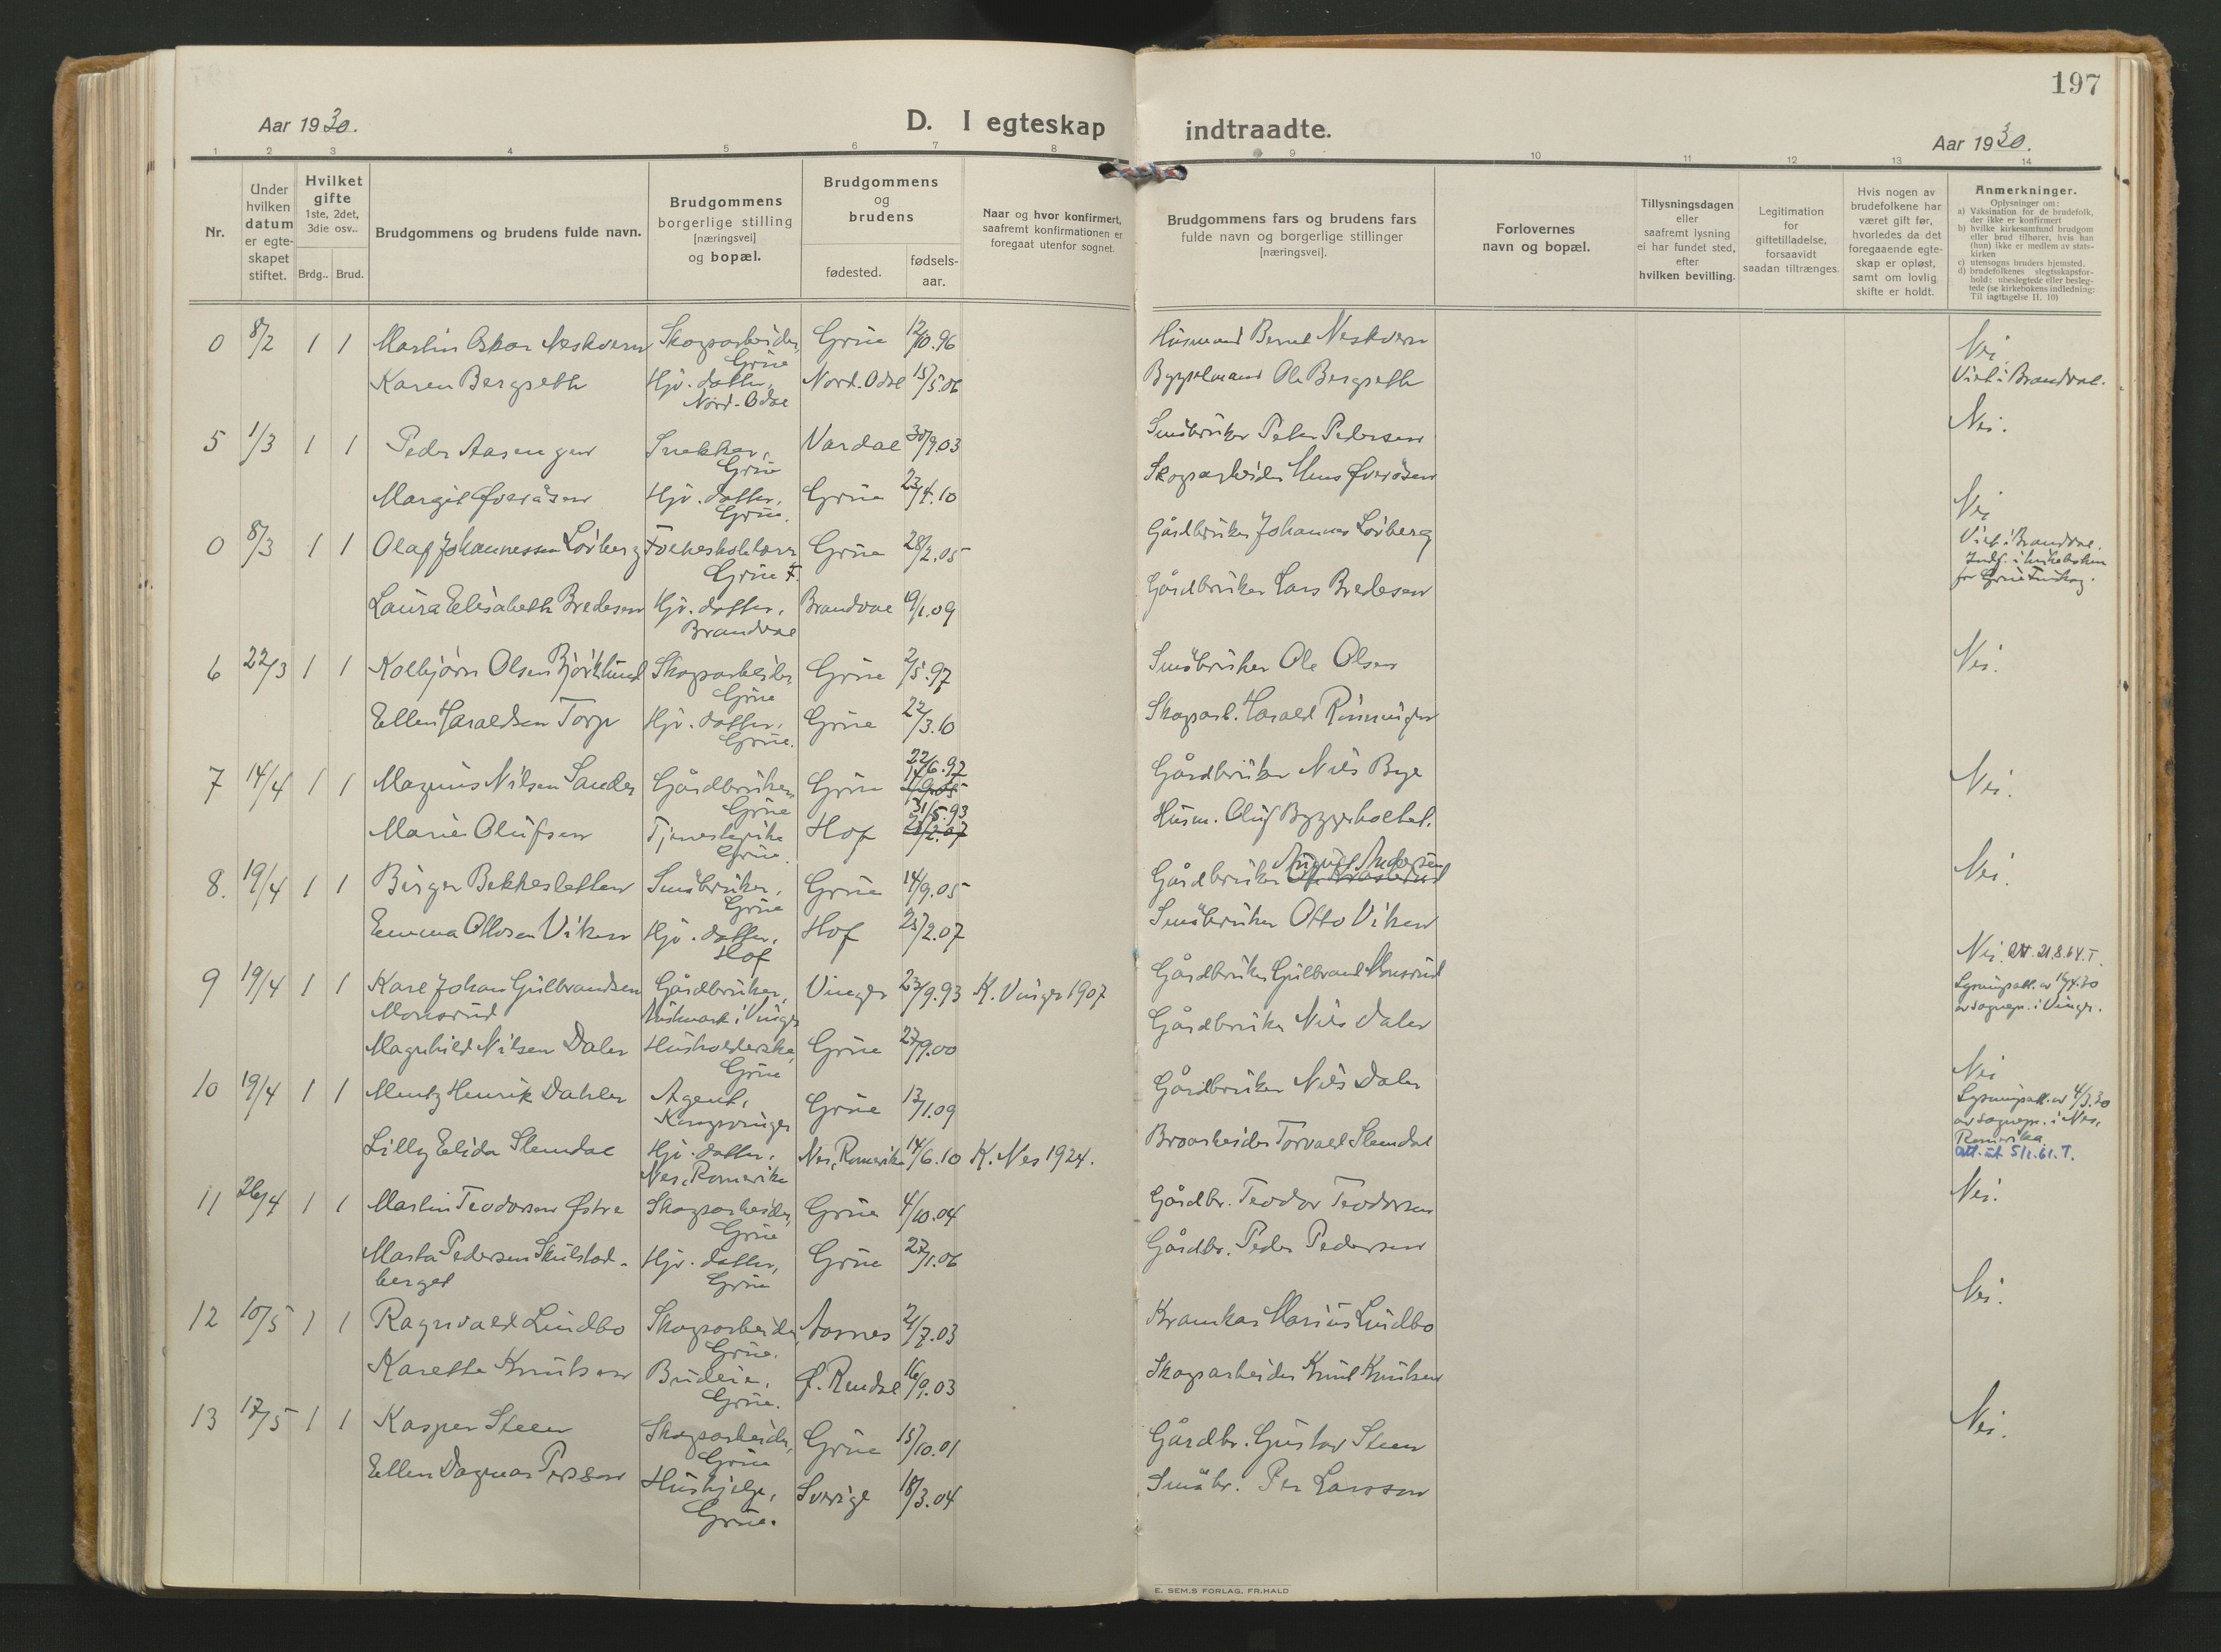 197
Aar 1930.
D. I egteskap indtraadte.
Aar 1930.
1 2 3 4 5 6 7 8 9 10 11 12 13 14
Nr.
Under
hvilken
datum
er egte-
skapet
stiftet.
Hvilket
gifte
1ste, 2det,
3die osv..
Brdg.. Brud.
Brudgommens og brudens fulde navn.
Brudgommens
borgerlige stilling
[næringsvei]
og bopæl.
Brudgommens
og
brudens
fødested.
fødsels-
aar.
Naar og hvor konfirmert,
saafremt konfirmationen er
foregaat utenfor sognet.
Brudgommens fars og brudens fars
fulde navn og borgerlige stillinger
[næringsvei].
Forlovernes
navn og bopæl.
Tillysningsdagen
eller
saafremt lysning
ei har fundet sted,
efter
hvilken bevilling.
Legitimation
for
giftetilladelse,
forsaavidt
saadan tiltrænges.
Hvis nogen av
brudefolkene har
været gift før,
hvorledes da det
foregaaende egte-
skap er opløst,
samt om lovlig
skifte er holdt.
Anmerkninger.
Oplysninger om:
a) Vaksination for de brudefolk,
der ikke er konfirmert
b) hvilke kirkesamfund brudgom
eller brud tilhører, hvis han
(hun) ikke er medlem av stats-
kirken
c) utensogns bruders hjemsted.
d) brudefolkenes slegtsskapsfor-
hold: ubeslegtede eller besleg-
tede (se kirkebokens indledning:
Til iagttagelse II. 10)
0 8/2 1 1 Martin Oskar Neskvern Skogsarbeider, Grue Grue 12/10.96 Husmand Bernt Neskvern Nei
Karen Bergseth Hjv. datter, Nord-Odal Nord-Odal 15/5.06 Bygselmand Ole Bergseth Viet i Brandval.
5 1/3 1 1 Peder Aasengen Snekker, Grue Vardal 30/9.03 Småbruker Peter Pedersen Nei.
Margit Øveråsen Hjv. datter, Grue. Grue 23/4.10 Skogsarbeider Øveråsen
0 8/3 1 1 Olaf Johannessen Lövberg Grue F. Grue 28/2.05 Gårdbruker Johannes Lövberg Nei
Viet i Brandval.
Indf. i kirkeboken
for Grue Finskog.
Laura Elisabeth Bredesen Hjv. datter, Brandval Brandval 19/1.09 Gårdbruker Lars Bredesen
6 22/3 1 1 Kolbjörn Olsen Björklund Skogsarbeider, Grue Grue 2/5.97 Småbruker Ole Olsen Nei.
Ellen Haraldsen Torp Hjv. datter, Grue. Grue 22/3.10 Skogsarb. Harald Rönningen
7 14/4 1 1 Magnus Nilsen Sander Gårdbruker, Grue Grue 22/6.97 14/9.05 Gårdbruker Nils Bye Nei.
Marie Olufsen Tjenestepike Grue. Hof 31/5.93 23/2.07 Husm. Oluf
8. 19/4 1 1 Birger Bekkesletten Småbruker, Grue Grue 14/9.05 Gårdbruker August Andersen Nei.
Emma Ottosen Viken Hjv. datter, Hof Hof 23/2.07 Småbruker Otto Viken
9 19/4 1 1 Karl Johan Gulbrandsen Monsrud Gårdbruker, Austmark i Vinger Vinger 23/9.93 K. Vinger 1907 Gårdbruker Gulbrand Monsrud Nei. Att. 21.8.64. T.
Lysningsatt. av 16/4.30
av sognepr. i Vinger.
Magnhild Nilsen Daler Husholderske, Grue Grue 27/9.00 Gårdbruker Nils Daler
10 19/4 1 1 Mentz Henrik Dahler Agent, Kongsvinger Grue 13/1.09 Gårdbruker Nils Daler Nei
Lysningsatt. av 4/3.30
av sognepr. i Nes,
Romerike.
Att. ut. 5/1.61. T.
Lilly Elida Slemdal Hjv. datter, Nes, Romerike Nes, Romerike 14/6.10 K. Nes 1924. Broarbeider Torvald Slemdal
11 26/4 1 1 Martin Teodorsen Østre Skogsarbeider, Grue Grue 4/10.04 Gårdbr. Teodor Teodorsen Nei.
Marta Pedersen Skulstad-
berget Hjv. datter, Grue Grue 27/1.06 Gårdbr. Peder Pedersen
12 10/5 1 1 Ragnvald Lindbo Skogsarbeider, Grue. Aasnes 21/7.03 Kramkar Marius Lindbo Nei.
Karette Knutsen Budeie, Grue. Ø. Rendal 16/9.03 Skogsarbeider Knut Knutsen
13 17/5 1 1 Kasper Steen Skogsarbeider, Grue Grue 15/10.01 Gårdbr. Gustav Steen Nei.
Ellen Dagmar Persson Hushjelp, Grue. Sverige 18/3.04 Småbr. Per Larsson
E. SEM.S FORLAG, FR.HALD